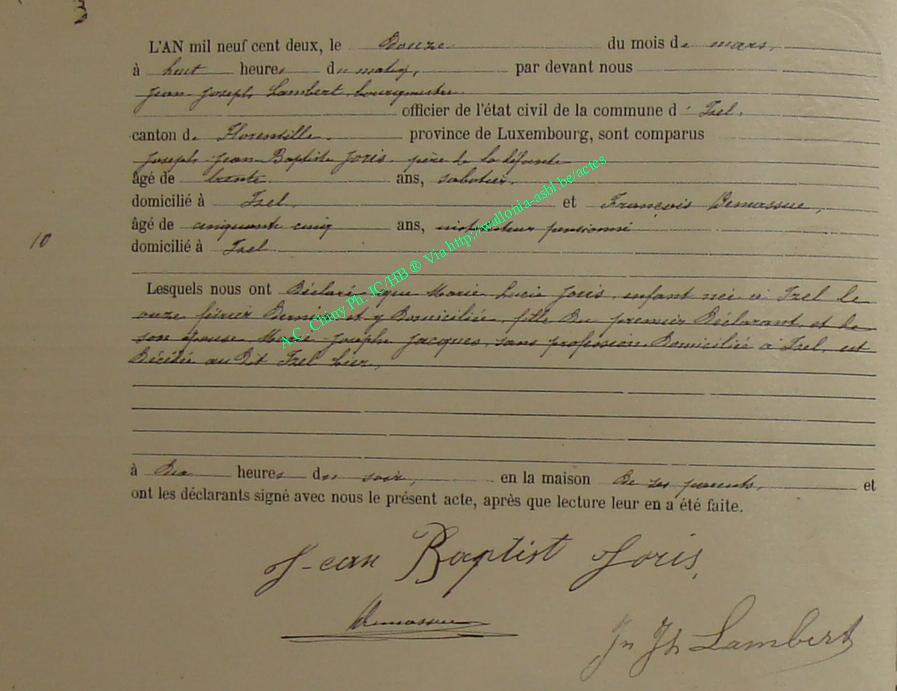 L'AN mil neuf cent deux, le Douze du mois de mars,
à huit heures du matin, par devant nous
Jean Joseph Lambert, bourgmestre
officier de l'état civil de la commune d' Izel,
canton de Florenville province de Luxembourg, sont comparus
Joseph Jean Baptiste Joris, père de la défunte
âgé de trente ans, sabotier,
domicilié à Izel et François Demassue,
10 âgé de cinquante cinq ans, instituteur pensionné
domicilié à Izel
Lesquels nous ont Déclaré que Marie Lucie Joris, enfant née à Izel le
onze février Dernier et y Domiciliée, fille Du premier Déclarant, et de
son épouse Marie Josephe Jacques, sans profession, Domiciliée à Izel, est
Décédée au Dit Izel hier,
à Dix heures du soir, en la maison De ses parents, et
ont les déclarants signé avec nous le présent acte, après que lecture leur en a été faite.
Jean Baptist Joris,
Demassue
Jn Jh Lambert
A.C. Chiny Ph. JC/HB ® Via http://wallonia-asbl.be/actes